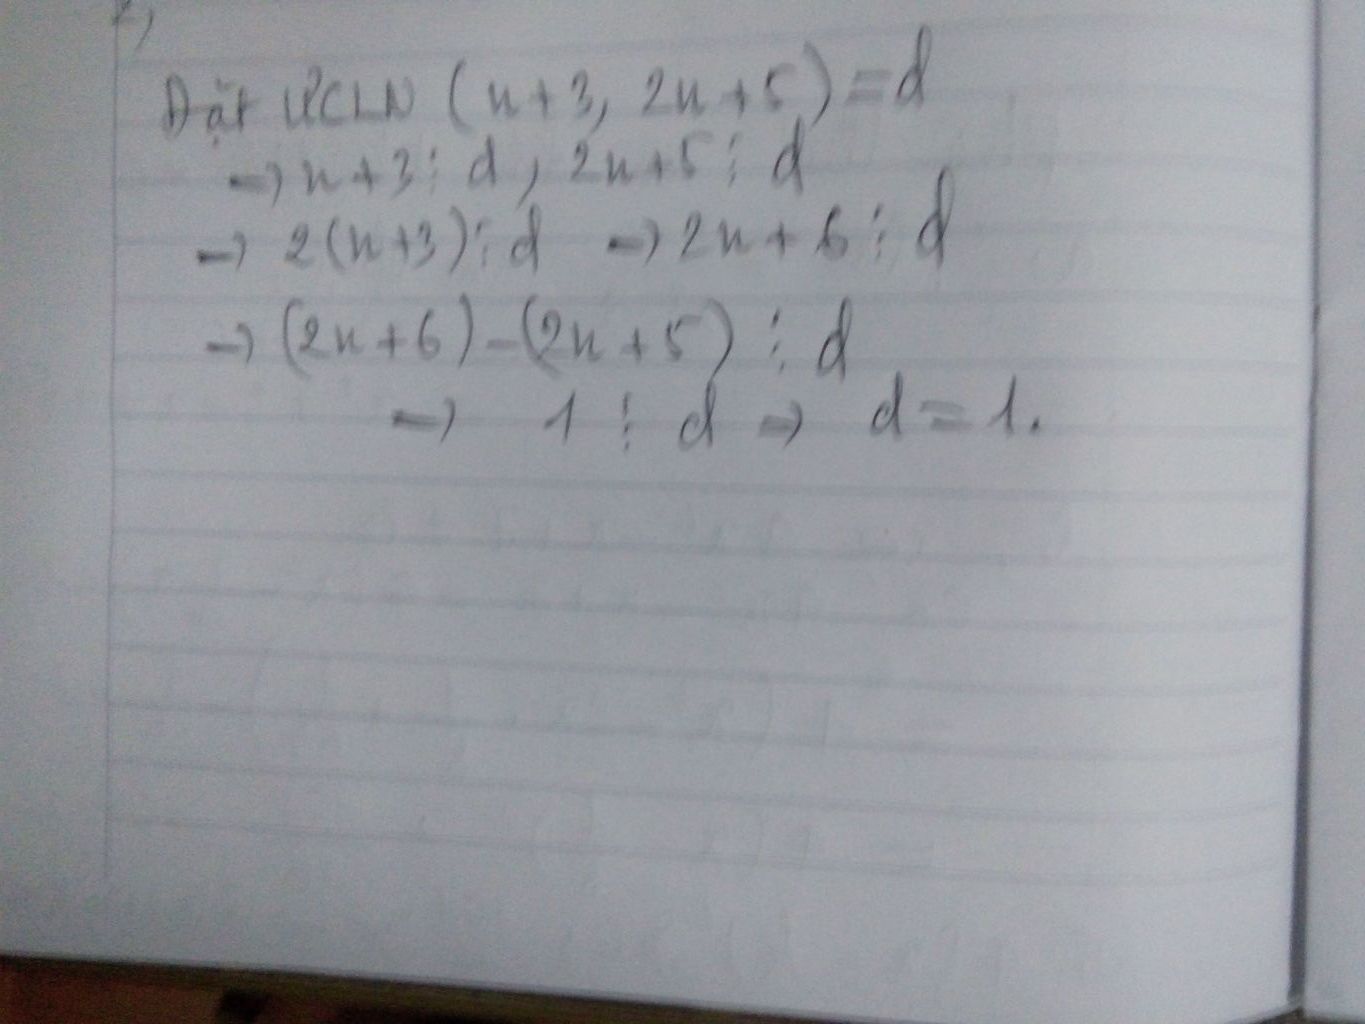 Đặt ƯCLN (n+3, 2n+5) = d
→ n+3 ⋮ d, 2n+5 ⋮ d
→ 2(n+3) ⋮ d → 2n+6 ⋮ d
→ (2n+6) - (2n+5) ⋮ d
→ 1 ⋮ d → d = 1.